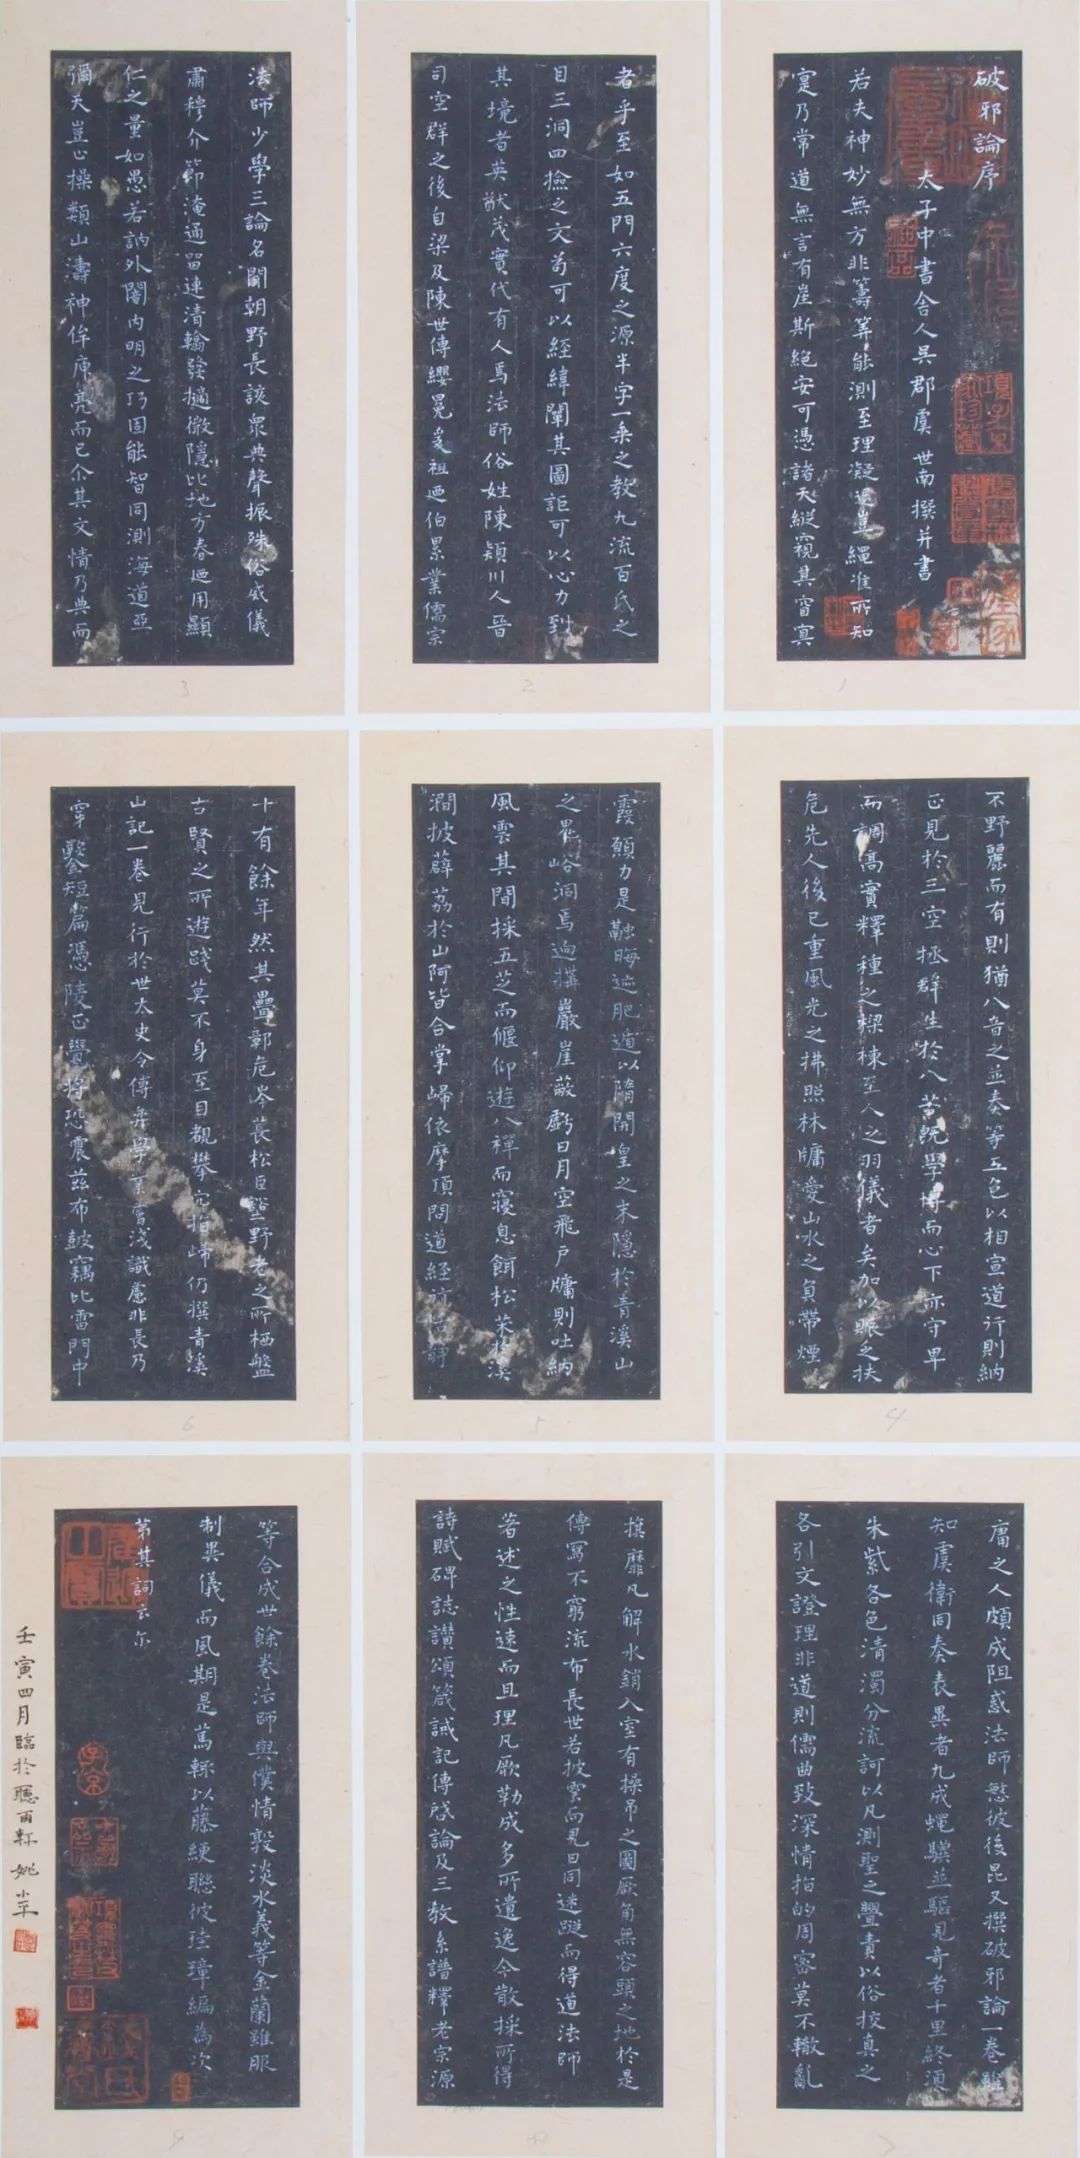 破邪論序
太子中書舍人吳郡虞世南撰并書
若夫神妙無方非籌筭能測至理凝邈豈繩准所知
寔乃常道無言有崖斯絕安可憑諸天縱窺其窅寘
1
者乎至如五門六度之源半字一乘之教九流百氏之
目三洞四撿之文茍可以經緯闡其圖詎可以心力到
其境者英猷茂實代有人焉法師俗姓陳潁川人晉
司空群之後自梁及陳世傳纓冕爰祖逎伯累業儒宗
2
法師少學三論名聞朝野長該眾典聲振殊俗威儀
肅穆介節淹通留連清翰發擿微隱比地方春逎用顯
仁之量如愚若訥外闇內明之巧固能智同測海道亞
彌天豈止操類山濤神侔庾亮而已尒其文情乃典而
3
不野麗而有則猶八音之並奏等五色以相宣道行則納
正見於三空拯群生於八苦既學博而心下亦守卑
而調高實釋種之樑棟至人之羽儀者矣加以賑乏扶
危先人後己重風光之拂照林牖愛山水之負帶煙
4
霞願力是融晦迹肥遁以隋開皇之末隱於青溪山
之鬼峪洞焉迥搆巖崖蔽虧日月空飛戶牖則吐納
風雲其間採五芝而偃仰遊八禪而寢息餌松茱於溪
澗披薜荔於山阿皆合掌歸依摩頂問道經
5
十有餘年然其疊鄣危岑長松巨壑野老之所栖盤
古賢之所遊踐莫不身至目覩攀穴指歸仍撰青溪
山記一卷見行於世太史令傅弈學業膚淺識慮非長乃
穿鑿短篇憑陵正覺將恐震茲布鼓竊比雷門中
6
庸之人頗成阻惑法師愍彼後昆又撰破邪論一卷雖
知虞衛同奏表異者九成蠅驥並驅見奇者千里終須
朱紫各色清濁分流訶以凡測聖之舋責以俗挍真之
各引文證理非道則儒曲致深情指的周密莫不轍亂
7
旗靡瓦解冰銷入室有操矛之圖厥角無容頭之地於是
傳寫不窮流布長世若披雲而見日同迷蹤而得道法師
著述之性速而且理凡厥勒成多所遺逸今散採所得
詩賦碑誌讚頌箴誡記傳啟論及三教系譜釋老宗源
8
等合成世餘卷法師與僕情敦淡水義等金蘭雖服
制異儀而風期是篤輒以藤緛聯彼珪璋編為次
第其詞云尔
壬寅四月臨於聽雨軒 姚小平
9